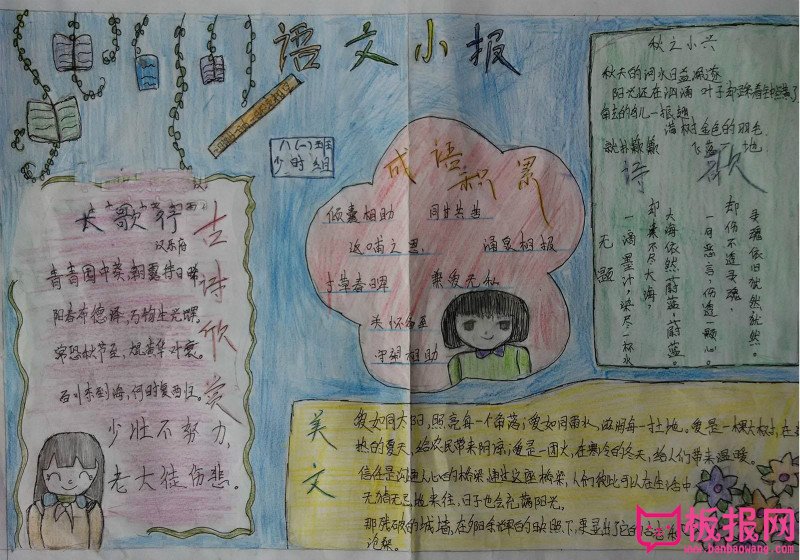 语文小报
八(一)班
少时组
长歌行
汉乐府
古诗欣赏
青青园中葵,朝露待日晞
阳春布德泽,万物生光辉。
常恐秋节至,焜黄华叶衰。
百川东到海,何时复西归。
少壮不努力,
老大徒伤悲。
成语积累
倾囊相助 同甘共苦
反哺之恩, 涌泉相报
寸草春晖
关怀备至
守望相助
秋之小兴
诗歌
无题
一滴墨汁,染尽一杯水
却染不尽大海,
大海依然蔚蓝,蔚蓝。
一句恶言,伤透一颗心。
却伤不透灵魂,
灵魂依旧犹然犹然。
美文
爱如同太阳,照亮每一个角落;爱如同雨水,滋润每一寸土地。爱是一棵大树,在
热的夏天,给农民带来阴凉;爱是一团火,在寒冷的冬天,给人们带来温暖。
信任是沟通人心的桥梁,通过这座桥梁,人们彼此可以在生活中
无猜无忌地来往,日子也会充满阳光。
那残破的城墙,在夕阳余晖的映照下,更显出了它的古老和
沧桑。
板报网
www.banbaowang.com